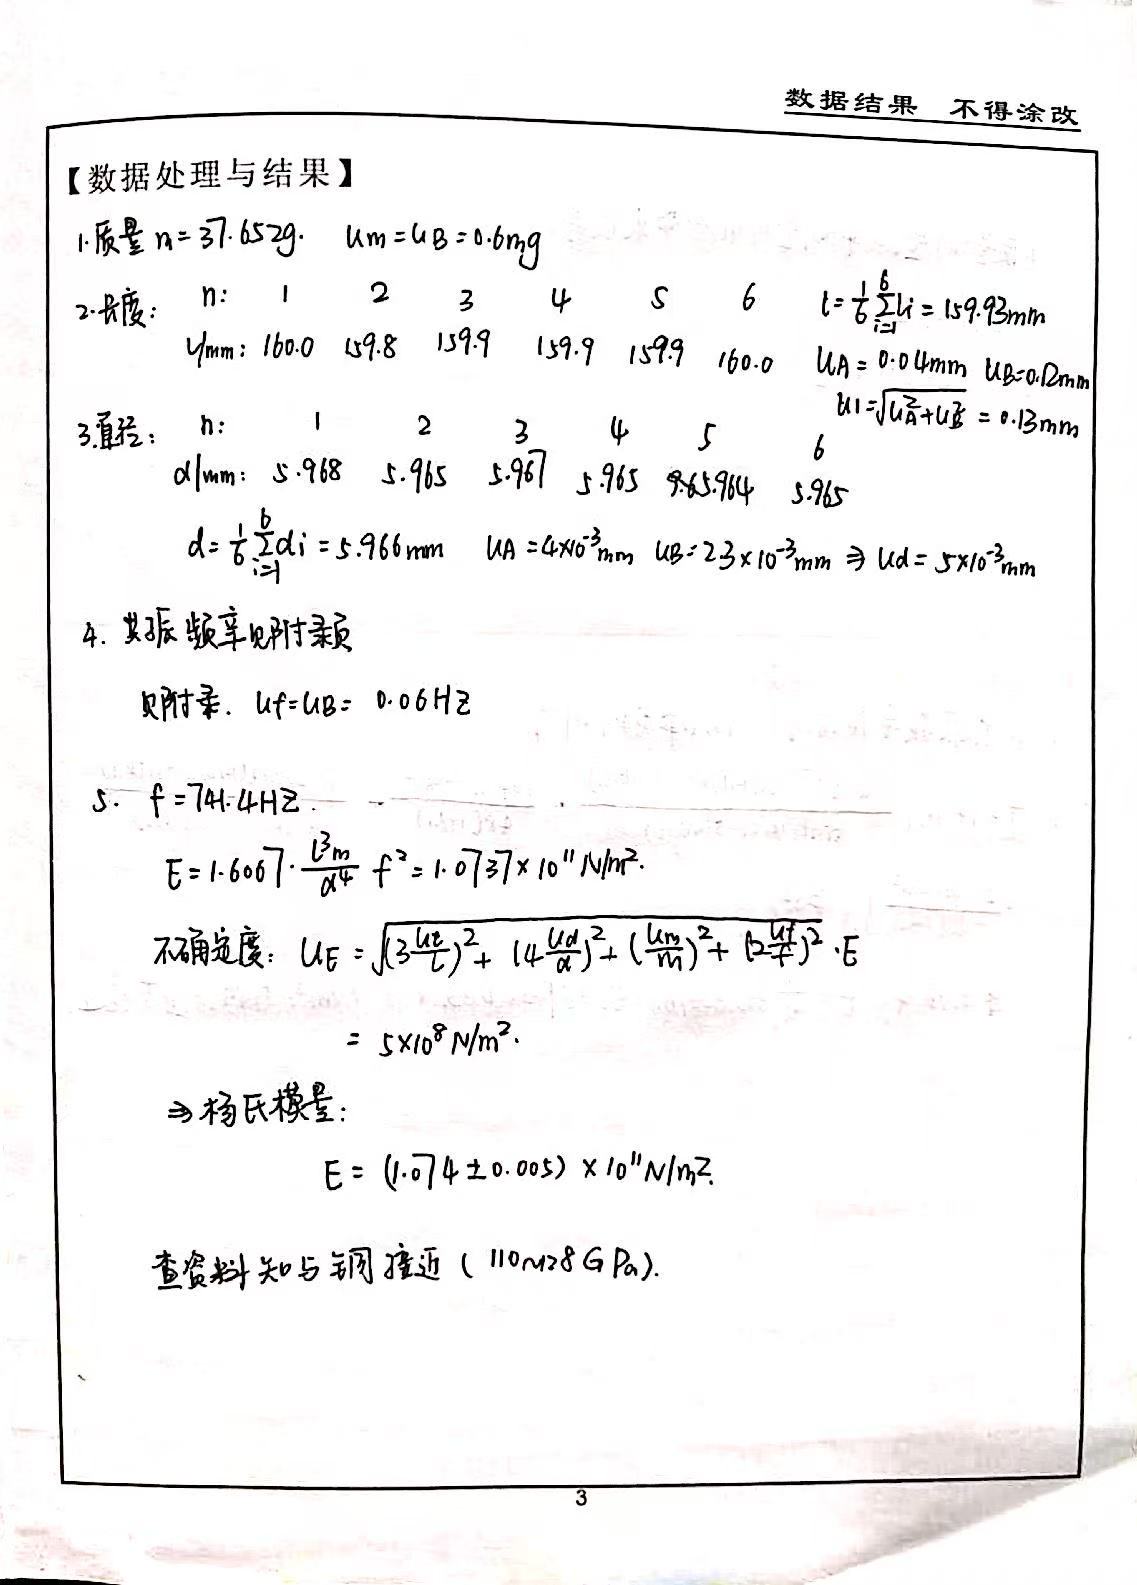 数据结果 不得涂改
【数据处理与结果】
1.质量 m=37.652g. Um=UB=0.6mg
2.长度: n: 1 2 3 4 5 6 l=1/6 Σ(i=1→6) li = 159.93mm
l/mm: 160.0 159.8 159.9 159.9 159.9 160.0 UA=0.04mm UB=0.12mm
Ul=√(UA²+UB²) = 0.13mm
3.直径: n: 1 2 3 4 5 6
d/mm: 5.968 5.965 5.967 5.965 5.964 5.965
d=1/6 Σ(i=1→6) di = 5.966mm UA=4×10⁻³mm UB=2.3×10⁻³mm ⇒ Ud=5×10⁻³mm
4. 共振频率见附录页
见附录. Uf=UB= 0.06HZ
5. f=741.4HZ.
E=1.6067·l³m/d⁴ f²=1.0737×10¹¹N/m².
不确定度: UE=√((3Ul/l)²+(4Ud/d)²+(Um/m)²+(2Uf/f)²)·E
= 5×10⁸N/m².
⇒杨氏模量:
E=(1.074±0.005)×10¹¹N/m².
查资料知与铜接近(110~128GPa).
3